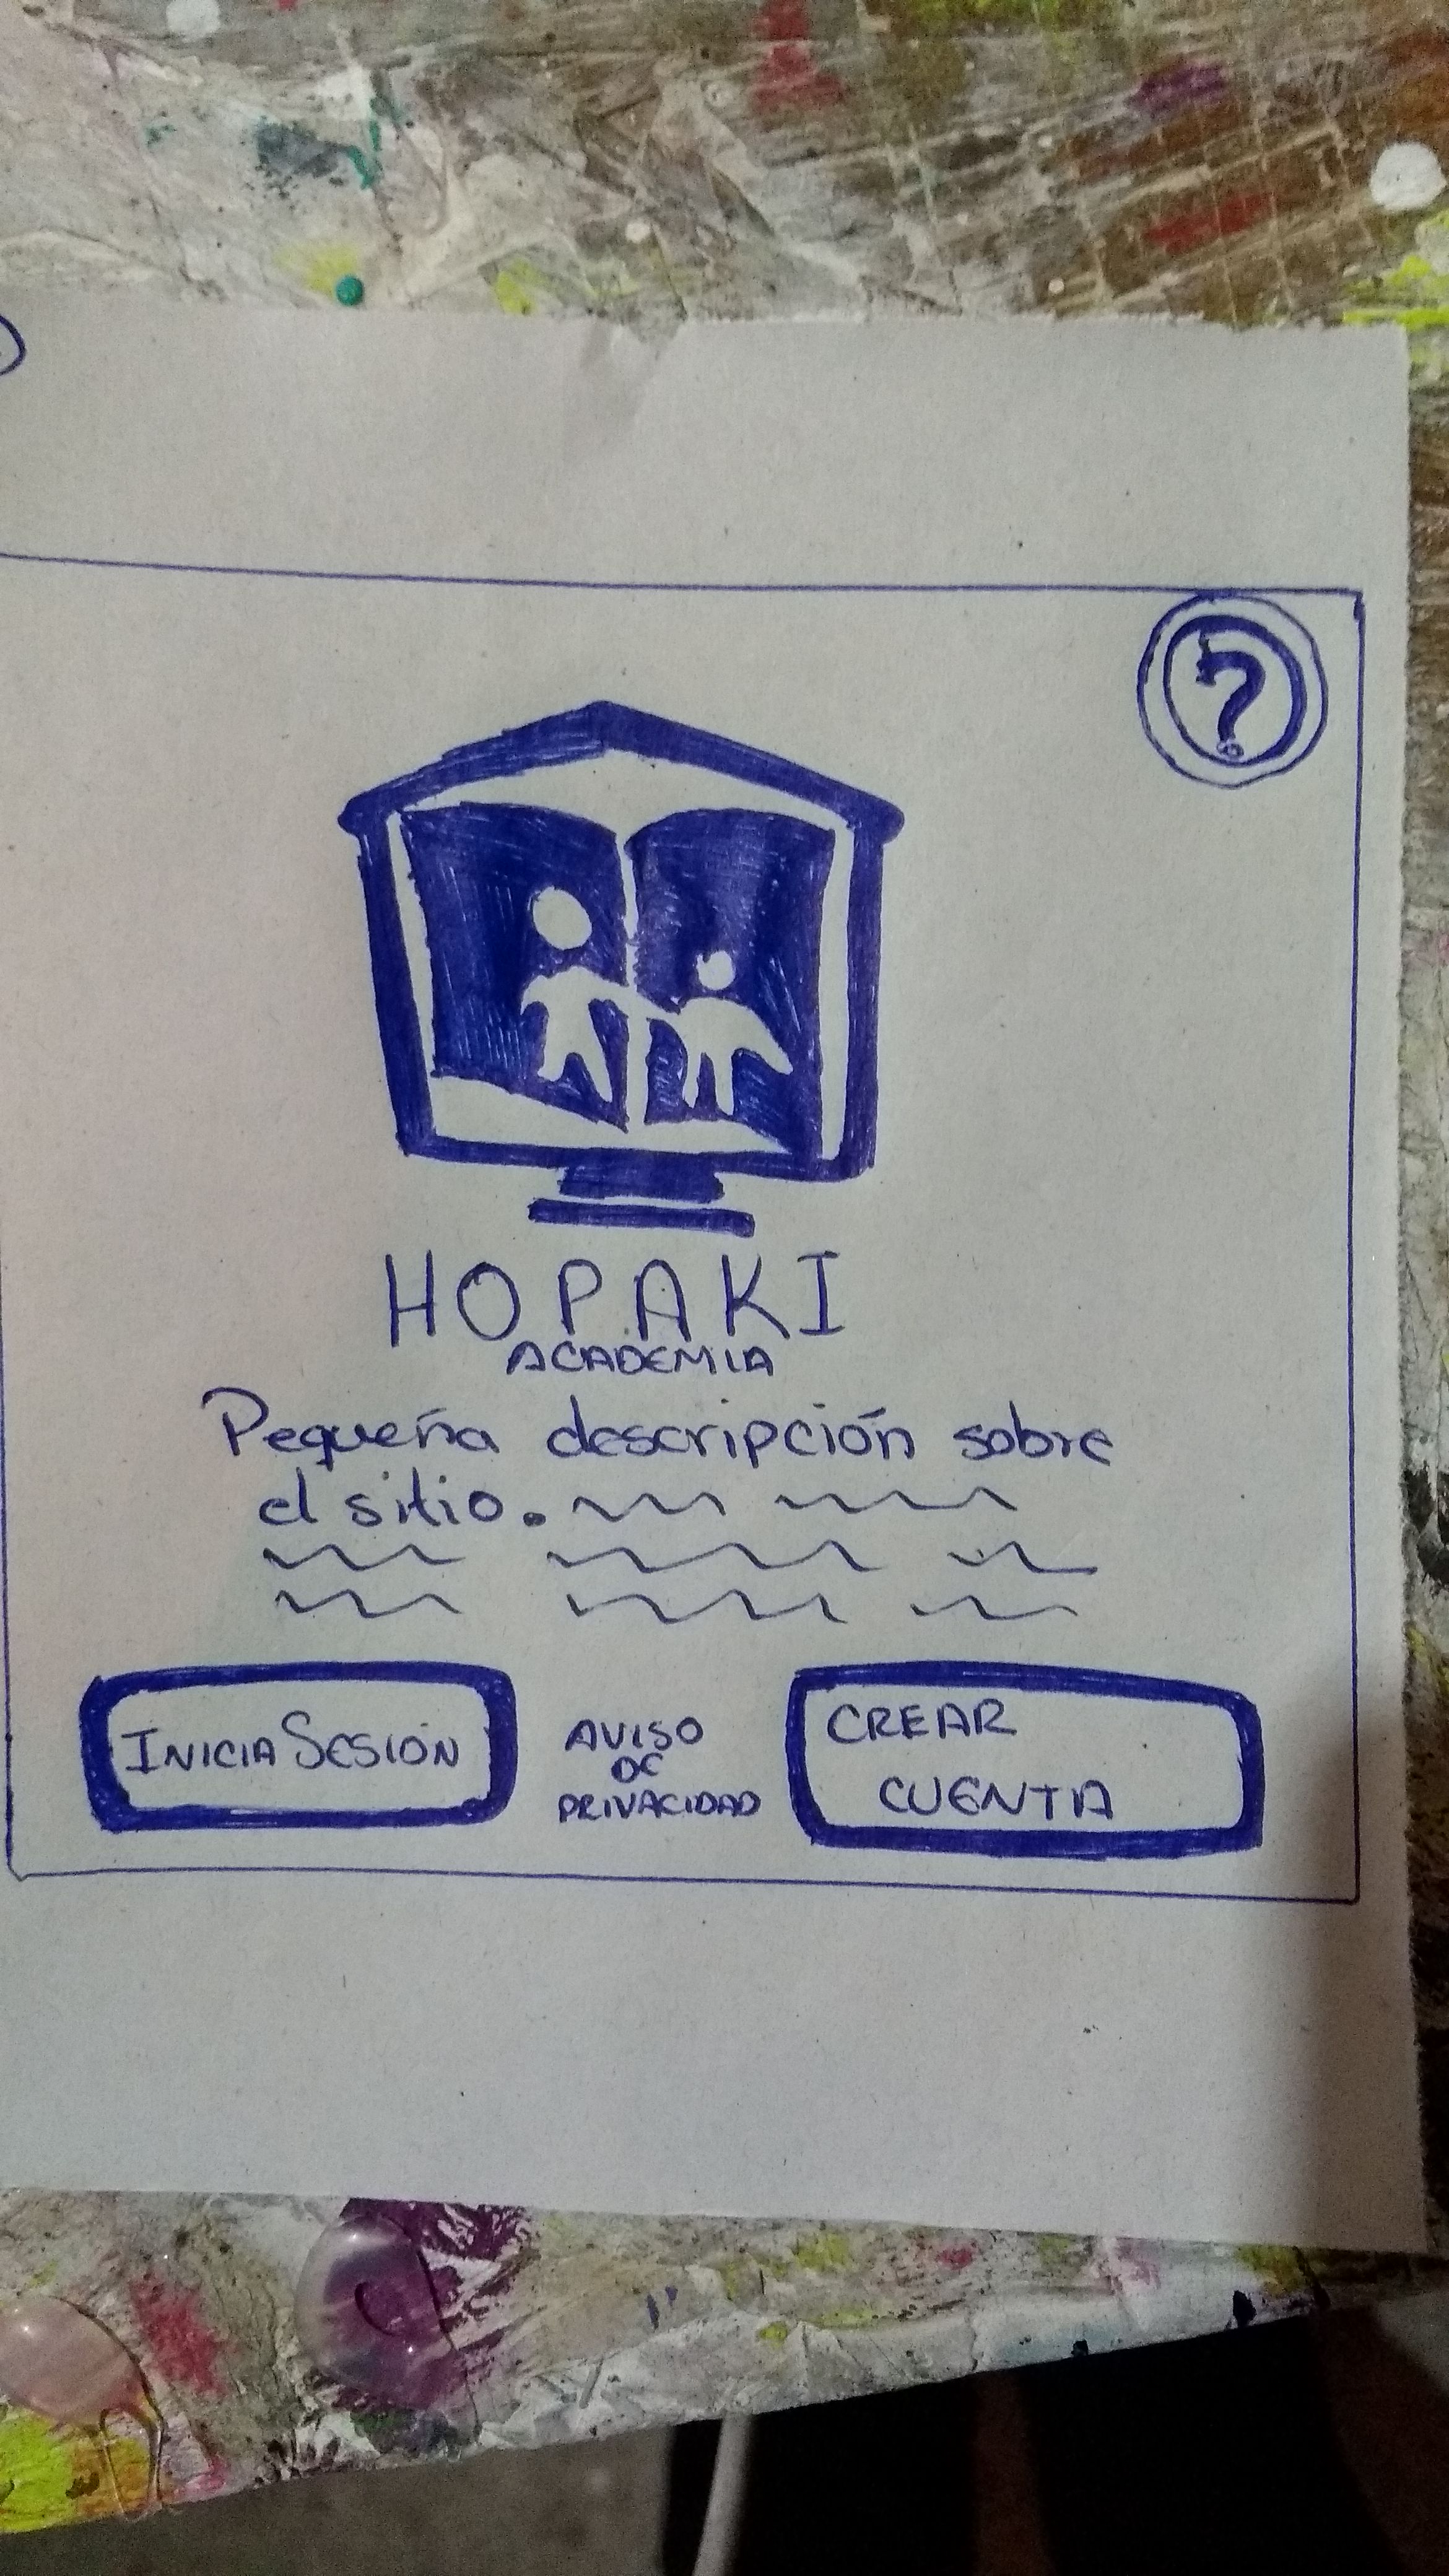 ?
HOPAKI
ACADEMIA
Pequeña descripción sobre
el sitio.
INICIA SESIÓN
AVISO
DE
PRIVACIDAD
CREAR
CUENTA